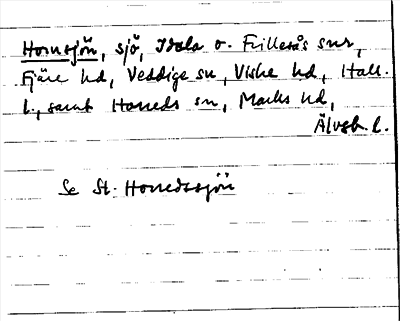 Hornsjön, sjö, Idala o. Frillesås snr,
Fjäre hd, Veddige sn, Viske hd, Hall.
l., samt Horreds sn, Marks hd,
Älvsb. l.
Se St. Horredssjön